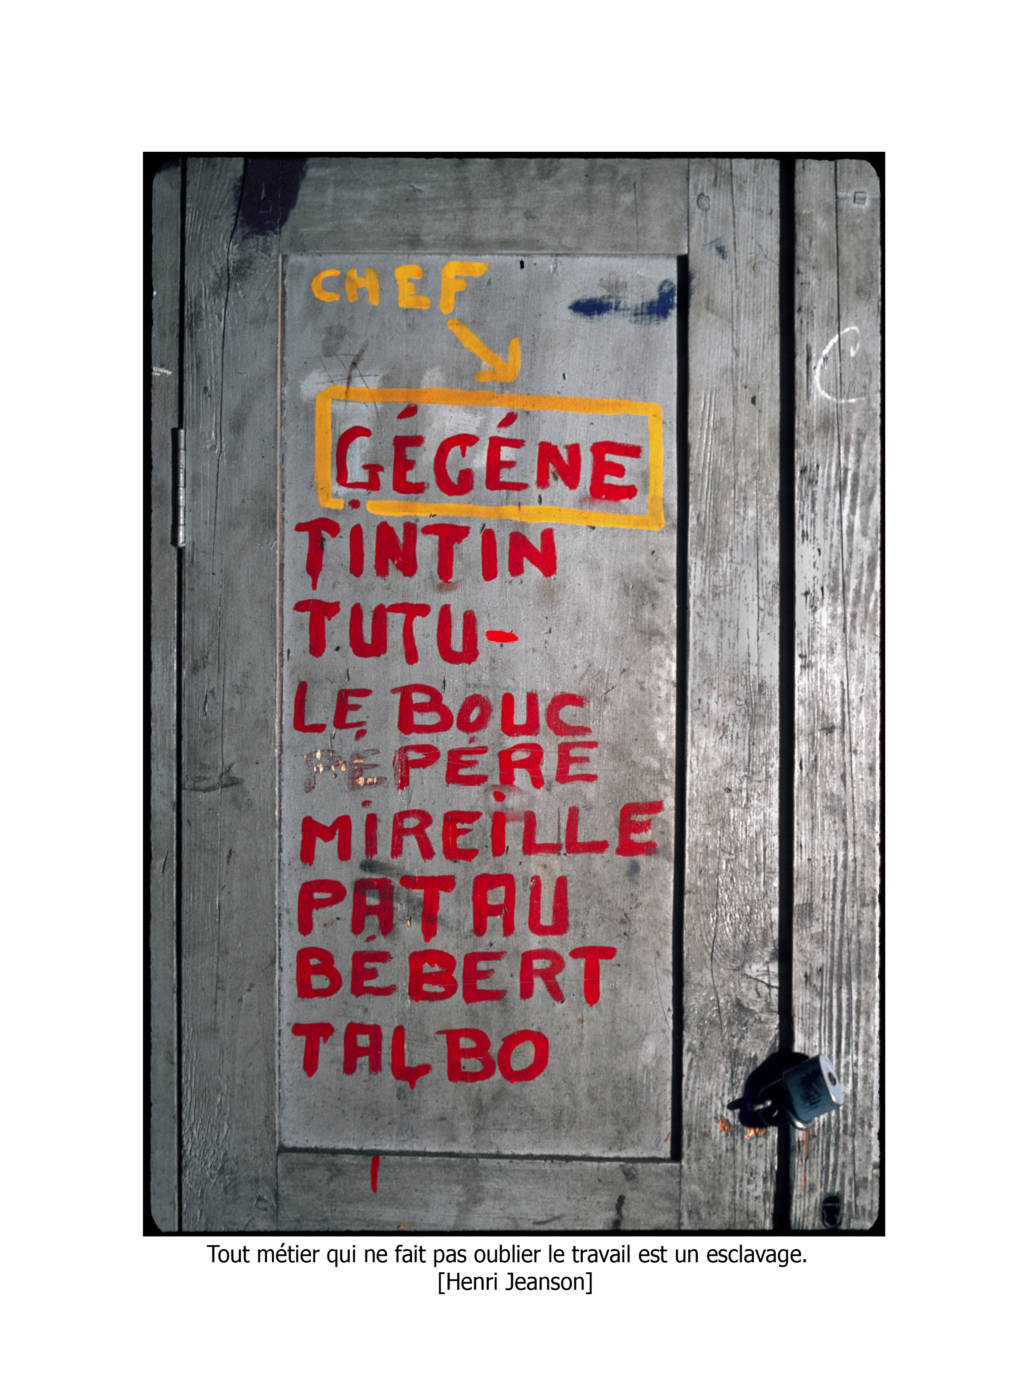 CHEF
GÉGÉNE
TINTIN
TUTU-
LE BOUC
PÉPÉRE
MIREILLE
PATAU
BÉBERT
TALBO
Tout métier qui ne fait pas oublier le travail est un esclavage.
[Henri Jeanson]